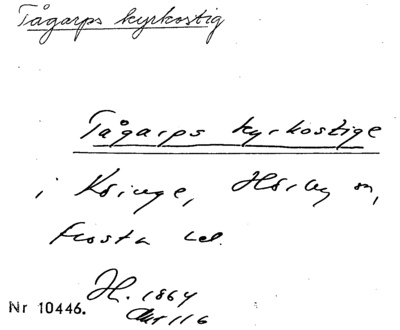 Tågarps kyrkostig
Tågarps kyrkostige
i Köinge, Hörby sn,
Frosta hd.
H. 1864
Akt 116
Nr 10446.